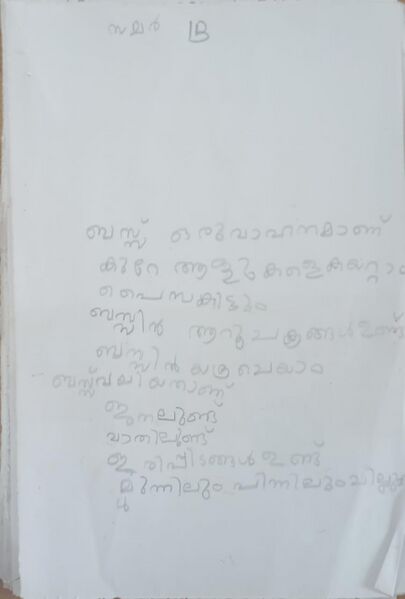 സമർ 1B
ബസ്സ് ഒരു വാഹനമാണ്
കുറേ ആളുകളെ കയറ്റാം
പൈസകിട്ടും
ബസ്സിൻ ആറു ചക്രങ്ങൾ ഉണ്ട്
ബസ്സിൻ യത്ര ചെയാം
ബസ്സ് വലിയതാണ്
ജനലുണ്ട്
വാതിലുണ്ട്
ഇരിപ്പിടങ്ങൾ ഉണ്ട്
മുന്നിലും പിന്നിലും